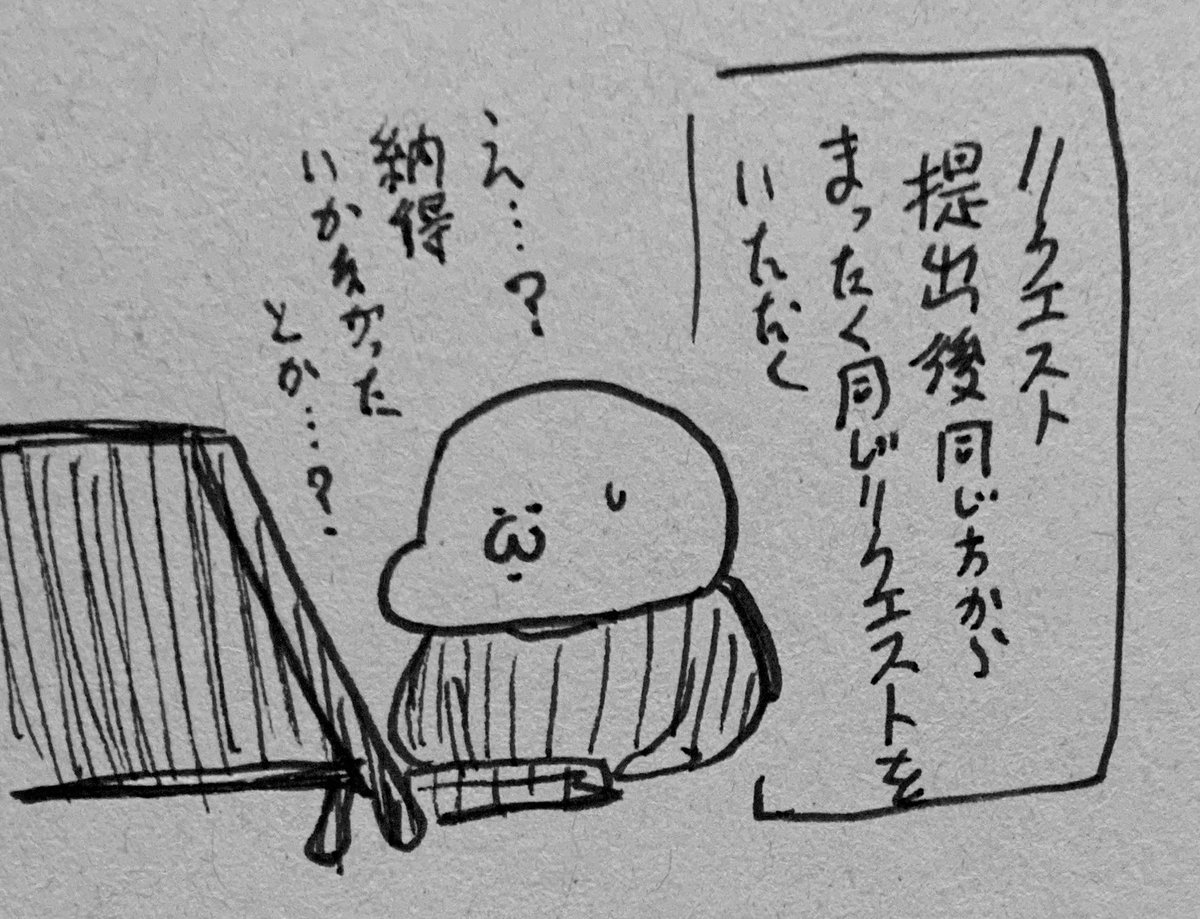 リクエスト
提出後同じ方から
まったく同じリクエストを
いただく
え…?
納得
いかなかった
とか…?